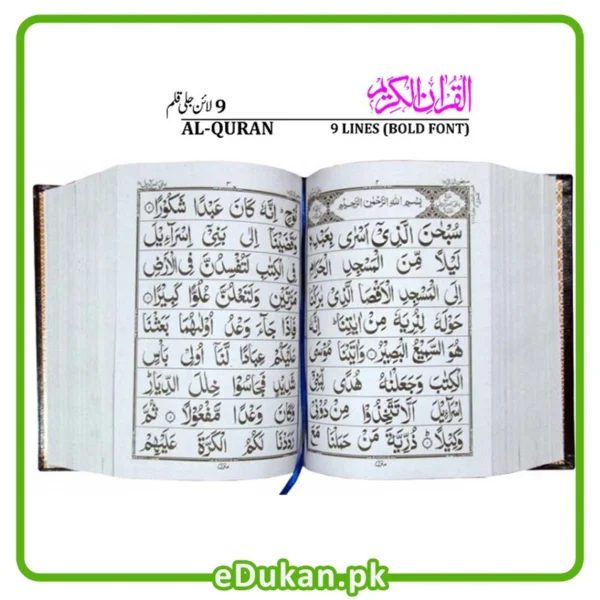 القرآن الكريم
9 لائن جلی قلم
AL-QURAN
9 LINES (BOLD FONT)
٢
بِسْمِ اللهِ الرَّحْمٰنِ الرَّحِيْمِ
سُبْحٰنَ الَّذِيْٓ اَسْرٰى بِعَبْدِهٖ
لَيْلًا مِّنَ الْمَسْجِدِ الْحَرَامِ
اِلَى الْمَسْجِدِ الْاَقْصَا الَّذِيْ بٰرَكْنَا
حَوْلَهٗ لِنُرِيَهٗ مِنْ اٰيٰتِنَا ؕ اِنَّهٗ
هُوَ السَّمِيْعُ الْبَصِيْرُ ۝ وَاٰتَيْنَا مُوْسَى
الْكِتٰبَ وَجَعَلْنٰهُ هُدًى لِّبَنِيْٓ
اِسْرَآءِيْلَ اَلَّا تَتَّخِذُوْا مِنْ دُوْنِيْ
وَكِيْلًا ۝ ذُرِّيَّةَ مَنْ حَمَلْنَا مَعَ
٣
نُوْحٍ ؕ اِنَّهٗ كَانَ عَبْدًا شَكُوْرًا ۝
وَقَضَيْنَآ اِلٰى بَنِيْٓ اِسْرَآءِيْلَ
فِي الْكِتٰبِ لَتُفْسِدُنَّ فِي الْاَرْضِ
مَرَّتَيْنِ وَلَتَعْلُنَّ عُلُوًّا كَبِيْرًا ۝
فَاِذَا جَآءَ وَعْدُ اُوْلٰىهُمَا بَعَثْنَا
عَلَيْكُمْ عِبَادًا لَّنَآ اُولِيْ بَاْسٍ
شَدِيْدٍ فَجَاسُوْا خِلٰلَ الدِّيَارِ ؕ
وَكَانَ وَعْدًا مَّفْعُوْلًا ۝ ثُمَّ
رَدَدْنَا لَكُمُ الْكَرَّةَ عَلَيْهِمْ
eDukan.pk